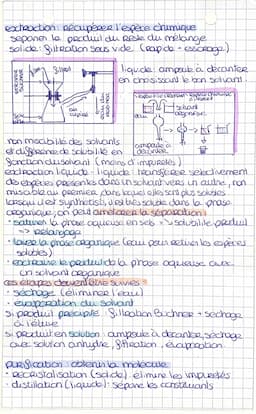 extraction : récupérer l'espèce chimique
séparer le produit du reste du mélange
solide : filtration sous vide (rapide + essorage)
liquide : ampoule à décanter
en choisissant le bon solvant
filtre
eau
solvant
organique
ampoule à
décanter
non miscibilité des solvants
et différence de solubilité en
fonction du solvant (moins d'impuretés)
extraction liquide - liquide : transférer sélectivement
des espèces présentes dans un solvant vers un autre, non
miscible au premier, dans lequel elles sont plus solubles.
lorsqu'il est synthétisé, il est très soluble dans la phase
organique, on peut améliorer la séparation :
• saturer la phase aqueuse en sels => ↘ solubilité produit
=> relargage
• laver la phase organique (eau pour retirer les espèces
solubles)
• extraire le produit de la phase aqueuse avec
un solvant organique
ces étapes doivent être suivies :
• séchage (éliminer l'eau)
• évaporation du solvant
si produit précipite : filtration Büchner + séchage
à l'étuve
si produit en solution : ampoule à décanter, séchage
avec solution anhydre, filtration, évaporation
purification : obtenir la molécule
• recristallisation (solide) : élimine les impuretés
• distillation (liquide) : sépare les constituants